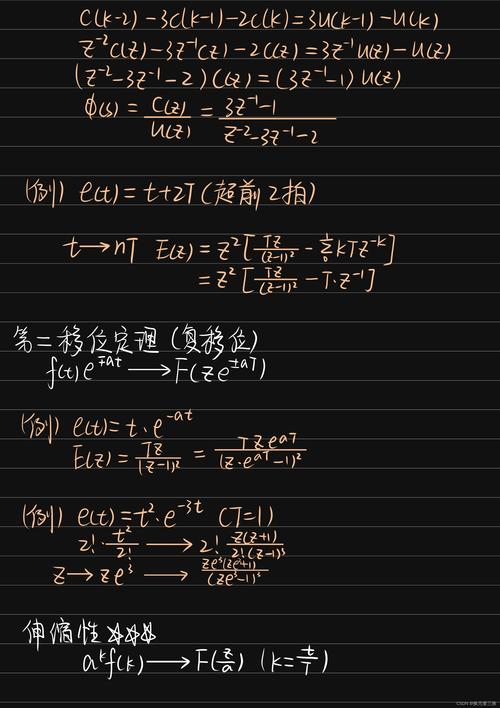 C(k-2)-3C(k-1)-2C(k)=3U(k-1)-U(k)
Z⁻²C(z)-3Z⁻¹C(z)-2C(z)=3Z⁻¹U(z)-U(z)
(Z⁻²-3Z⁻¹-2)C(z)=(3Z⁻¹-1)U(z)
Φ(s)=C(z)/U(z)=(3Z⁻¹-1)/(Z⁻²-3Z⁻¹-2)
(例) e(t)=t+2T(超前2拍)
t→nT E(z)=z²[Tz/(z-1)²-Σ₀¹kTz⁻ᵏ]
=z²[Tz/(z-1)²-T·z⁻¹]
第二移位定理(复移位)
f(t)e^(∓at)→F(ze^(±aT))
(例) e(t)=t·e^(-at)
E(z)=Tz/(z-1)²=Tze^(aT)/(z·e^(aT)-1)²
(例) e(t)=t²·e^(-3t) (T=1)
2!·t²/2!→2!·z(z+1)/2!(z-1)³
z→ze³→ze³(ze³+1)/(ze³-1)³
伸缩性☆☆☆
aᵏf(k)→F(z/a) (k=t/T)